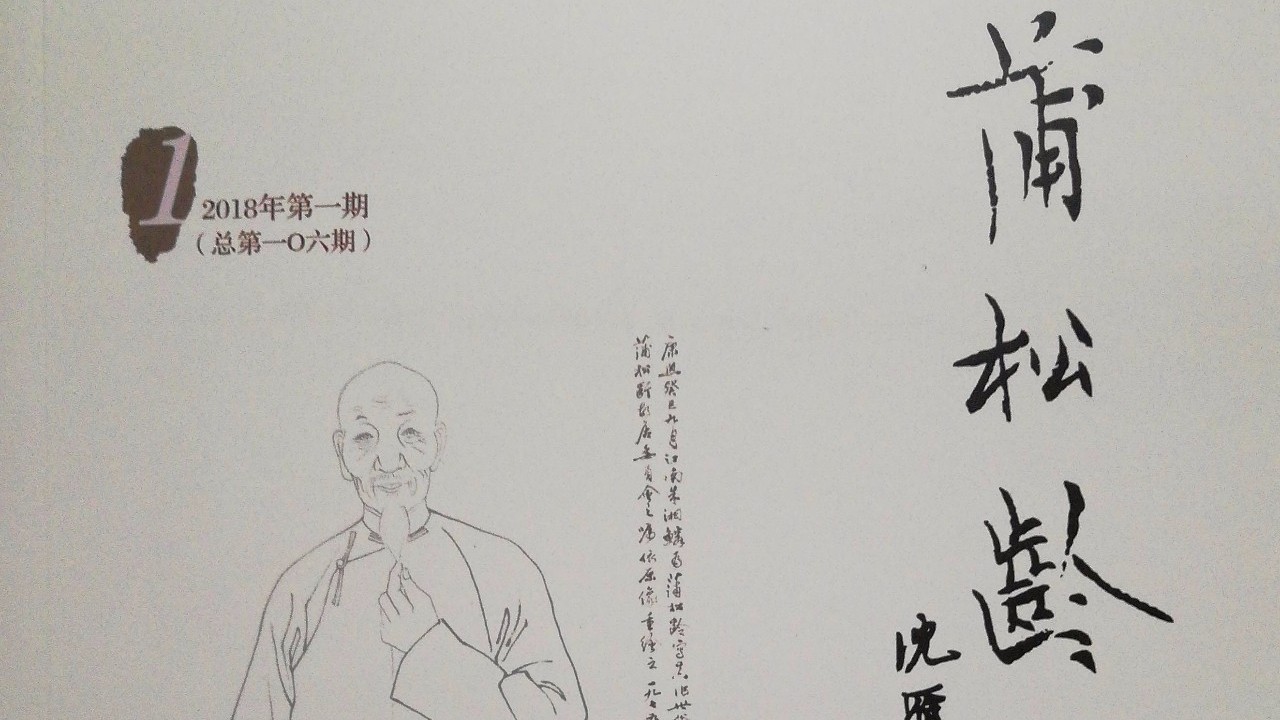 1
2018年第一期
（总第一〇六期）
蒲松龄
沈雁
康熙癸巳九月江南朱湘鳞为蒲松龄写真
蒲松龄故居委员会之嘱依原像重绘之一九七